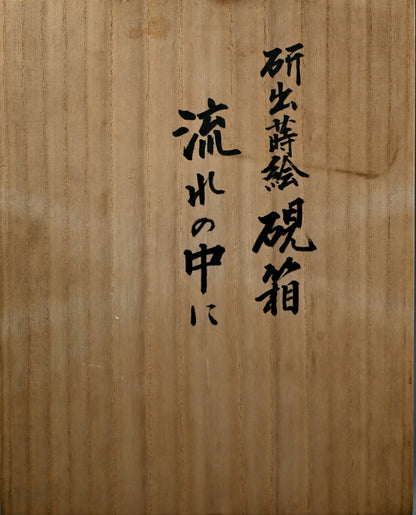 研出蒔絵 硯箱
流れの中に